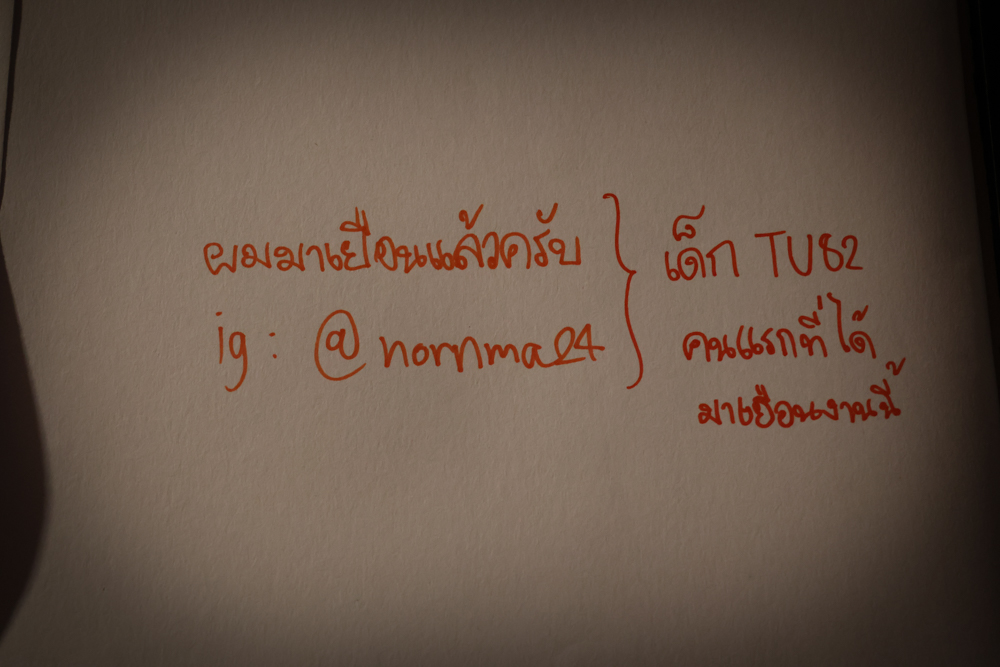 ผมมาเยือนแล้วครับ
ig : @nornma24
เด็ก TU82
คนแรกที่ได้
มาเยือนงานนี้